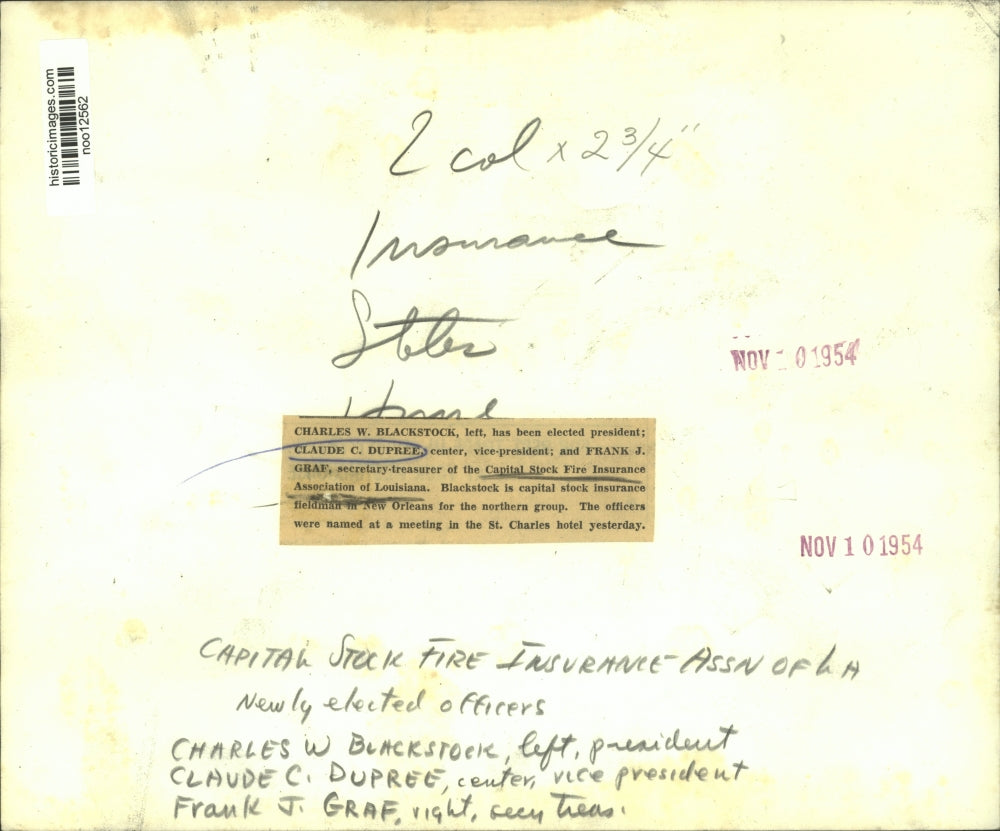 historicimages.com
noo12562
2 col x 2 3/4"
Insurance
States
NOV 10 1954
CHARLES W. BLACKSTOCK, left, has been elected president;
CLAUDE C. DUPREE, center, vice-president; and FRANK J.
GRAF, secretary-treasurer of the Capital Stock Fire Insurance
Association of Louisiana. Blackstock is capital stock insurance
fieldman in New Orleans for the northern group. The officers
were named at a meeting in the St. Charles hotel yesterday.
NOV 10 1954
CAPITAL STOCK FIRE INSURANCE ASSN OF LA
Newly elected officers
CHARLES W BLACKSTOCK, left, president
CLAUDE C. DUPREE, center, vice president
Frank J. GRAF, right, secy treas.